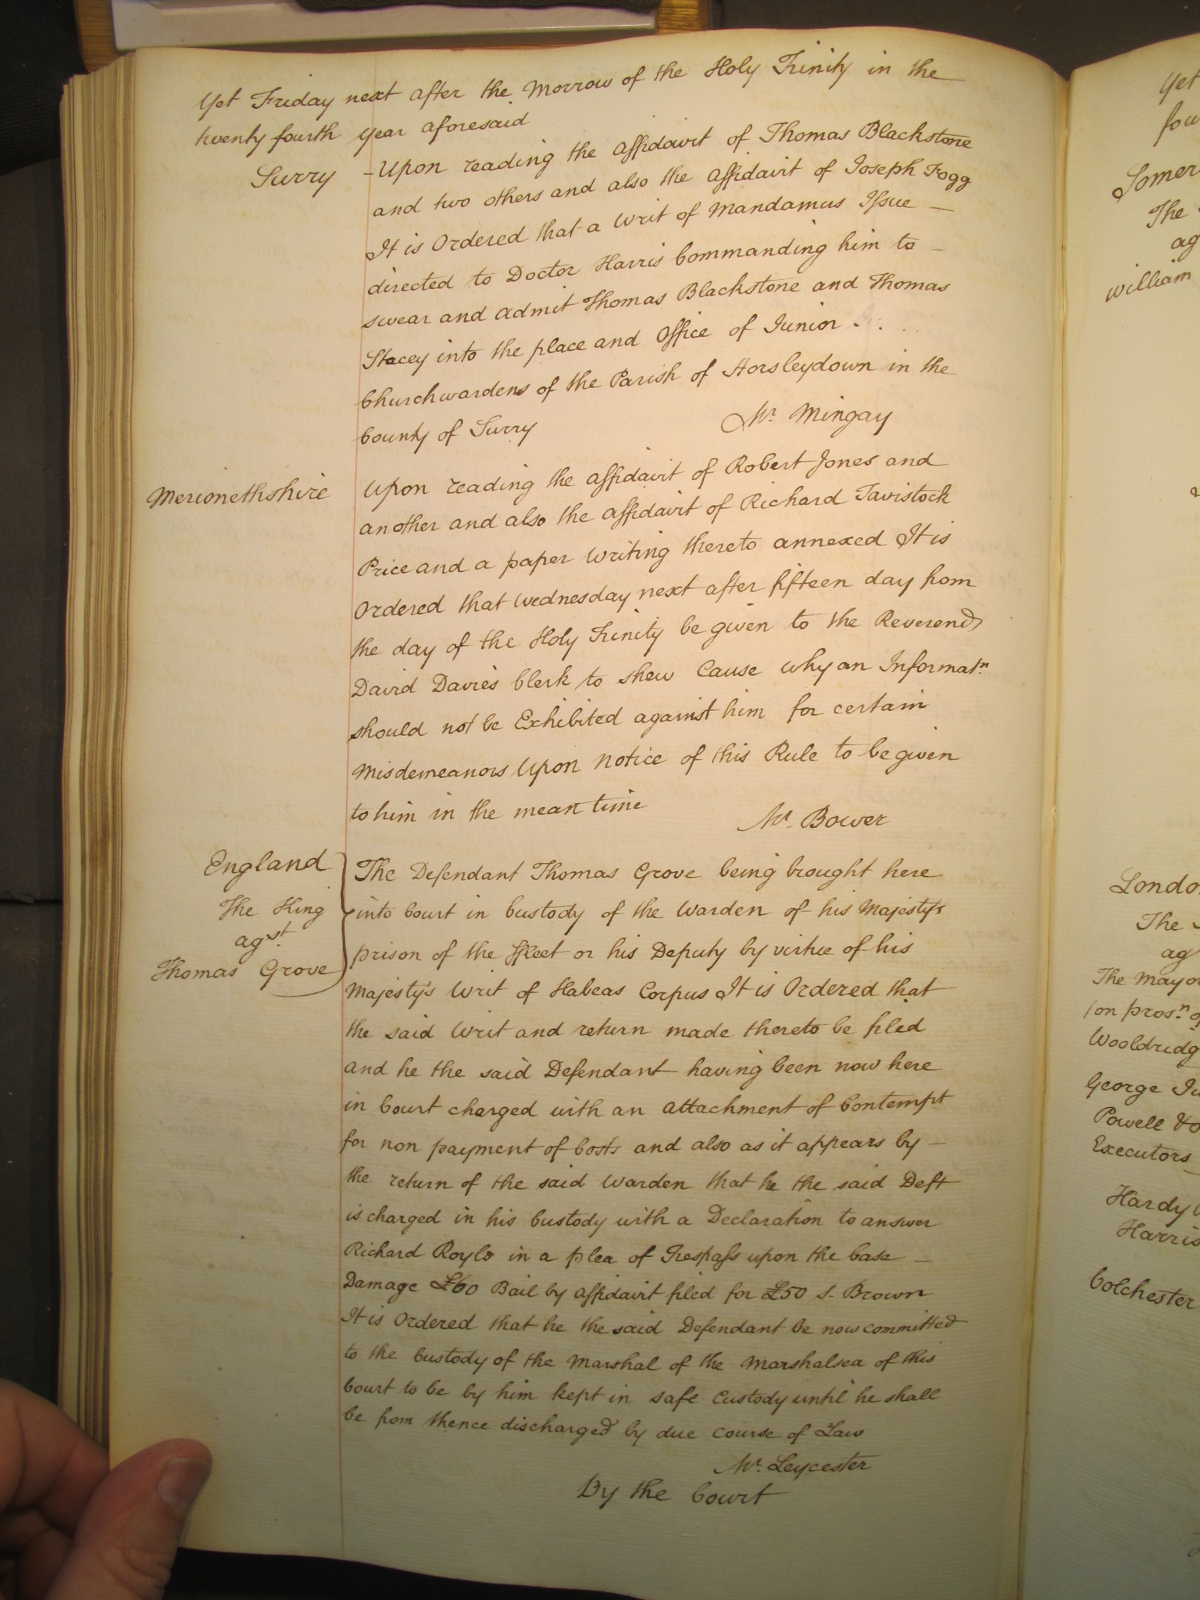 Yet Friday next after the Morrow of the Holy Trinity in the
twenty fourth year aforesaid
Surry - Upon reading the affidavit of Thomas Blackstone
and two others and also the affidavit of Joseph Fogg
It is Ordered that a Writ of Mandamus Issue
directed to Doctor Harris Commanding him to
swear and admit Thomas Blackstone and Thomas
Stacey into the place and Office of Junior
Churchwardens of the Parish of Horsleydown in the
County of Surry
Mr. Mingay
Merionethshire Upon reading the affidavit of Robert Jones and
another and also the affidavit of Richard Tavistock
Price and a paper writing thereto annexed It is
Ordered that Wednesday next after fifteen day from
the day of the Holy Trinity be given to the Reverend
David Davies Clerk to shew Cause why an Informatn.
should not be Exhibited against him for certain
Misdemeanors Upon notice of this Rule to be given
to him in the mean time
Mr. Bower
England
The King
agst.
Thomas Grove
The Defendant Thomas Grove being brought here
into Court in Custody of the Warden of his Majesty's
prison of the Fleet or his Deputy by virtue of his
Majesty's Writ of Habeas Corpus It is Ordered that
the said Writ and return made thereto be filed
and he the said Defendant having been now here
in Court charged with an attachment of Contempt
for non payment of Costs and also as it appears by
the return of the said Warden that he the said Deft
is charged in his Custody with a Declaration to answer
Richard Roylo in a plea of Trespass upon the Case
Damage £60 Bail by affidavit filed for £50 S. Brown
It is Ordered that he the said Defendant be now committed
to the Custody of the Marshal of the Marshalsea of this
Court to be by him kept in safe Custody until he shall
be from thence discharged by due course of Law
Mr. Leycester
By the Court
Yet
Somer
The
ag
William
Londo
The
ag
The Mayo
(on pros.n o
Wooldridg
George Ju
Powell &o
Executors
Hardy
Harris
Colchester